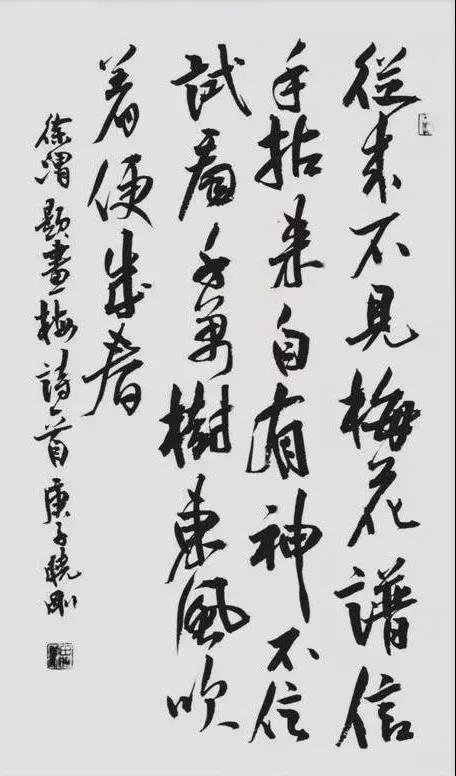 從來不見梅花譜信
手拈來自有神不信
試看千萬樹東風吹
着便成春
徐渭題畫梅詩一首庚子曉剛